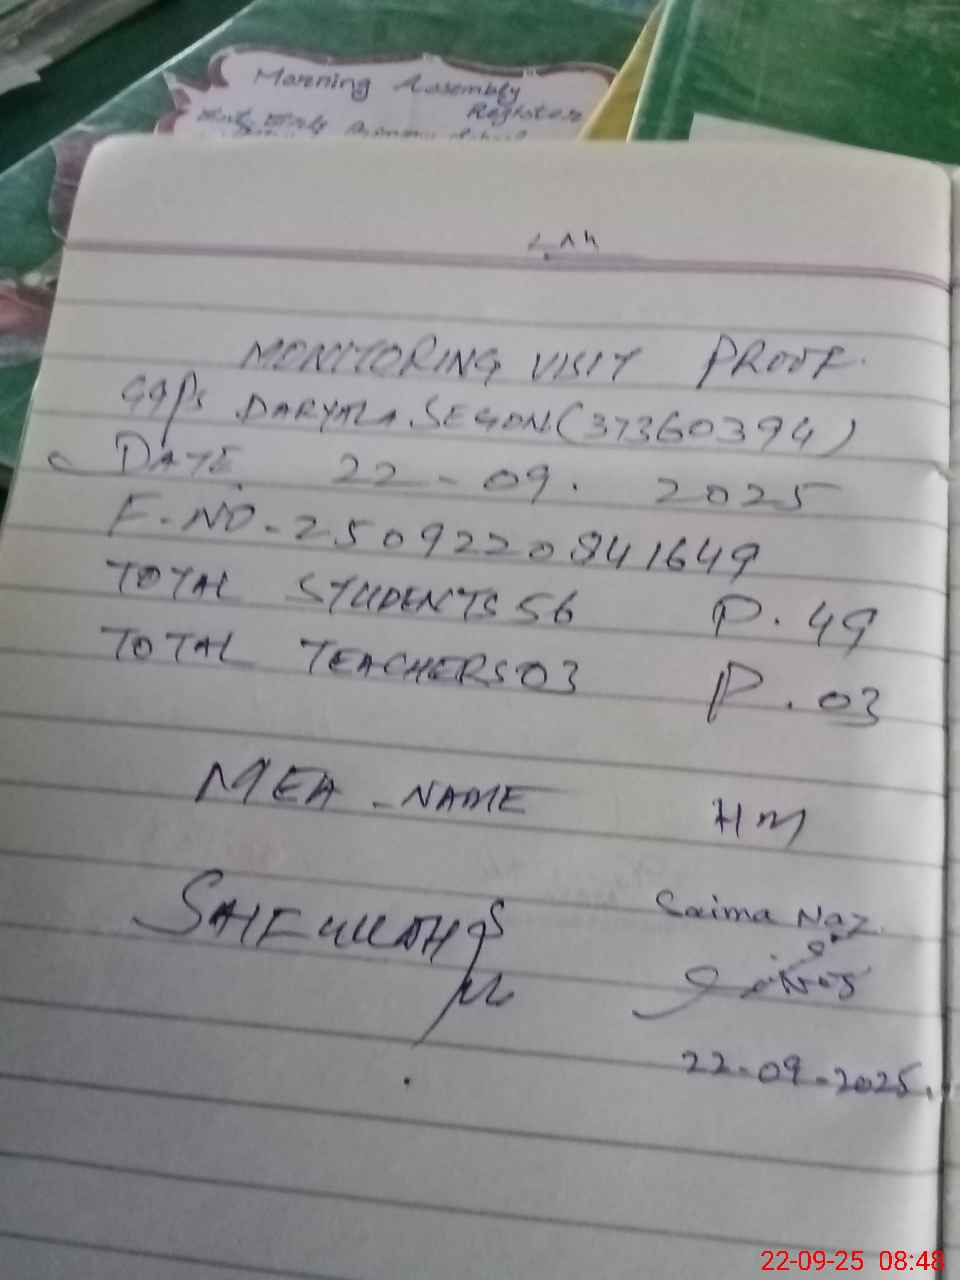 Morning Assembly
Register
MONITORING VISIT PROOF.
GGPS DARYALA.SEGON(37360394)
DATE. 22-09. 2025
F.NO-2509220841649
TOTAL STUDENTS 56 P.49
TOTAL TEACHERS 03 P.03
MEA.NAME HM
Saima Naz
22-09-2025.
22-09-25 08:48